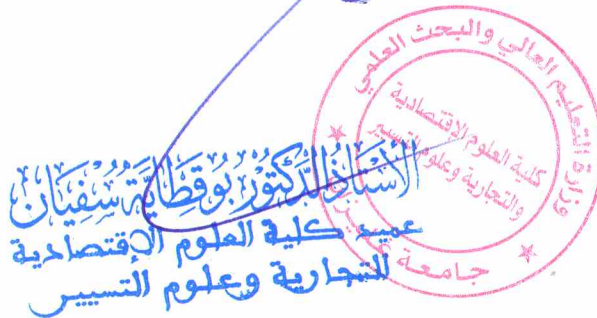 وزارة التعليم العالي والبحث العلمي
كلية العلوم الإقتصادية
والتجارية وعلوم التسيير
جامعة
الأستاذ الدكتور بوقطاية سفيان
عميد كلية العلوم الإقتصادية
التجارية وعلوم التسيير